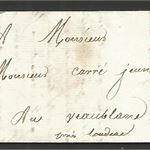 A Monsieur
Monsieur carré jeune
Au veaublanc
près loudeac